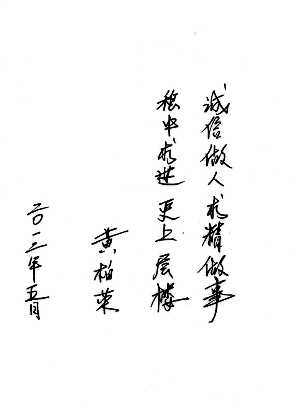 诚信做人求精做事
稳中求进更上层楼
黄柏荣
二〇一三年五月